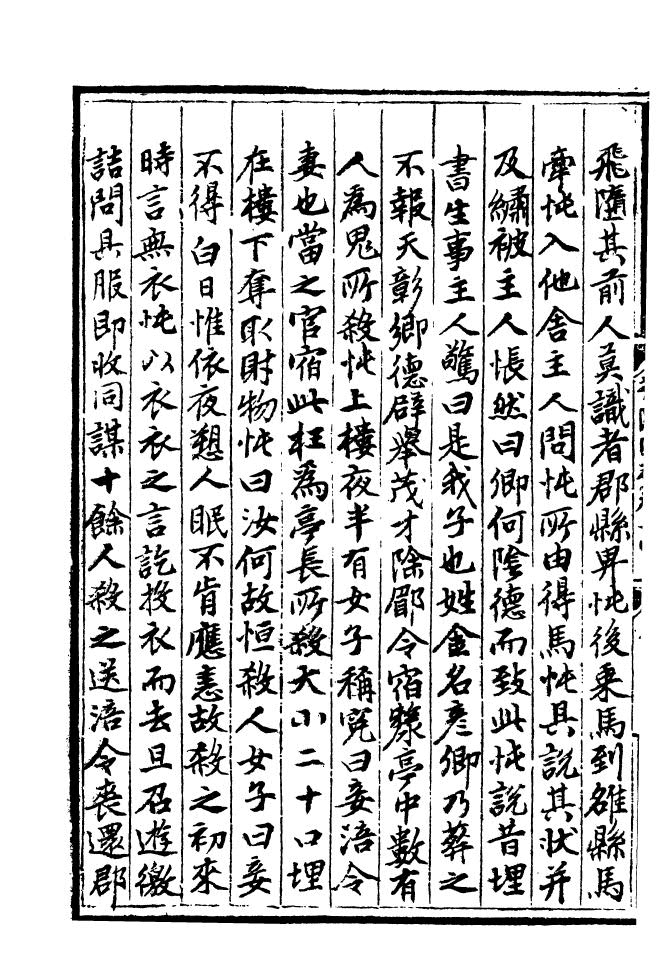 飛墮其前人莫識者郡縣畀忳後乗馬到雒縣馬
牽忳入他舍主人問忳所由得馬忳具說其状并
及繡被主人悵然曰卿何隂德而致此忳說昔埋
書生事主人驚曰是我子也姓金名彦卿乃葬之
不報天彰卿德辟舉茂才除郿令宿斄亭中數有
人為鬼所殺忳上樓夜半有女子稱寃曰妾涪令
妻也當之官宿此枉為亭長所殺大小二十口埋
在樓下奪取財物忳曰汝何故恒殺人女子曰妾
不得白日惟依夜愬人眠不肯應恚故殺之初來
時言無衣忳以衣衣之言訖投衣而去旦召遊徼
詰問具服即收同謀十餘人殺之送涪令喪還郡